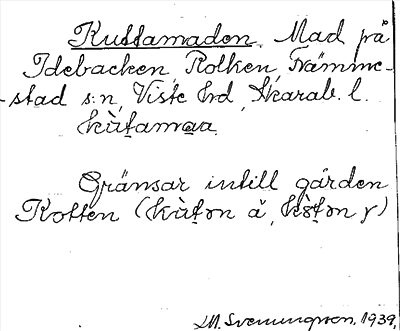 Kuttamaden, Mad på
Idebacken, Kolken, Främme-
stad s:n, Viste hrd, Skarab. l.
kùt̠amaa
Gränsar intill gården
Kotten (kùt̠ən ä, kòt̠ən y)
M. Svenungsson, 1939.